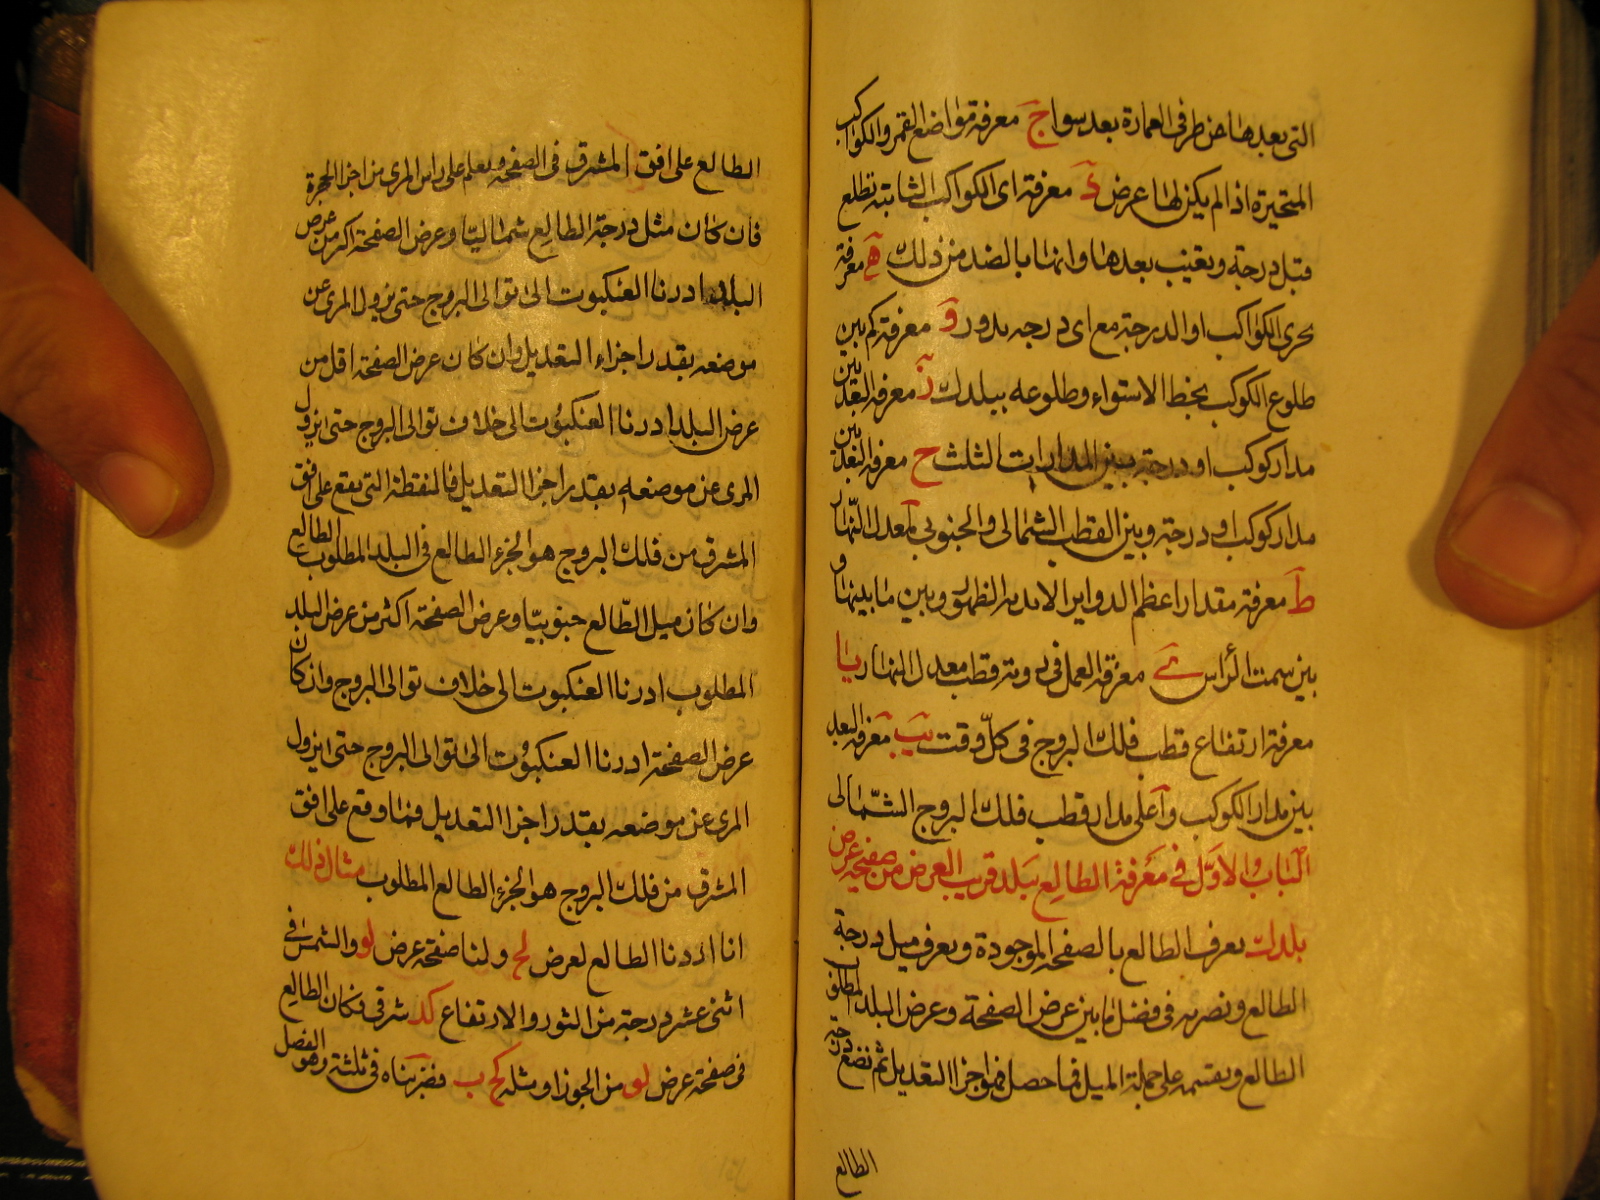 التى بعدها عن طرفى العمارة بعد سوا ج معرفة مواضع القمر والكواكب
المتحيرة اذا لم يكن لها عرض د معرفة اى الكواكب الثابتة تطلع
قبل درجة ويغيب بعدها وانها بالضد من ذلك ه معرفة
مجرى الكواكب او الدرجة مع اى درجه يدور و معرفة كم بين
طلوع الكوكب بخط الاستواء وطلوعه ببلدك ز معرفة البعد بين
مدار كوكب او درجة بين المدارات الثلث ح معرفة البعد بين
مدار كوكب او درجة وبين القطب الشمالى والجنوبى لمعدل النهار
ط معرفة مقدار اعظم الدواير الابدية الظهور وبين ما بينها و
بين سمت الرأس ى معرفة العمل فى رؤية قطب معدل النهار يا
معرفة ارتفاع قطب فلك البروج فى كلّ وقت يب معرفة البعد
بين مدار الكوكب واعلى مدار قطب فلك البروج الشّمالى
الباب الاوّل فى معرفة الطالع ببلد قريب العرض من صفيحة عرض
بلدك يعرف الطالع بالصفحة الموجودة ويعرف ميل درجة
الطالع ونضربه فى فضل ما بين عرض الصفحة وعرض البلد المطلوب
الطالع ويقسمه على جملة الميل فما حصل فهو اجزا التعديل ثم نضع درجة
الطالع
الطالع على افق المشرق فى الصفحة ويعلم على راس المرى من اجزا الحجرة
فان كان مثل درجة الطالع شماليّا وعرض الصفحة اكثر من عرض
البلد ادرنا العنكبوت الى توالى البروج حتى يزول المرى عن
موضعه بقدر اجزاء التعديل وان كان عرض الصفحة اقل من
عرض البلد ادرنا العنكبوت الى خلاف توالى البروج حتى يزول
المرى عن موضعه بقدر اجزا التعديل فالنقطة التى يقع على افق
المشرق من فلك البروج هو الجزء الطالع فى البلد المطلوب الطالع
وان كان ميل الطّالع جنوبيّا وعرض الصفحة اكثر من عرض البلد
المطلوب ادرنا العنكبوت الى خلاف توالى البروج وان كان
عرض الصفحة ادرنا العنكبوت الى توالى البروج حتى يزول
المرى عن موضعه بقدر اجزا التعديل فما وقع على افق
المشرق من فلك البروج هو الجزء الطالع المطلوب مثال ذلك
انا اردنا الطالع لعرض لح ولنا صفحة عرض لو والشمس فى
اثنى عشر درجة من الثور والارتفاع كد شرقى فكان الطالع
فى صفحة عرض لو من الجوزا وميله كح ب فضربناه فى ثلثة وهو الفضل